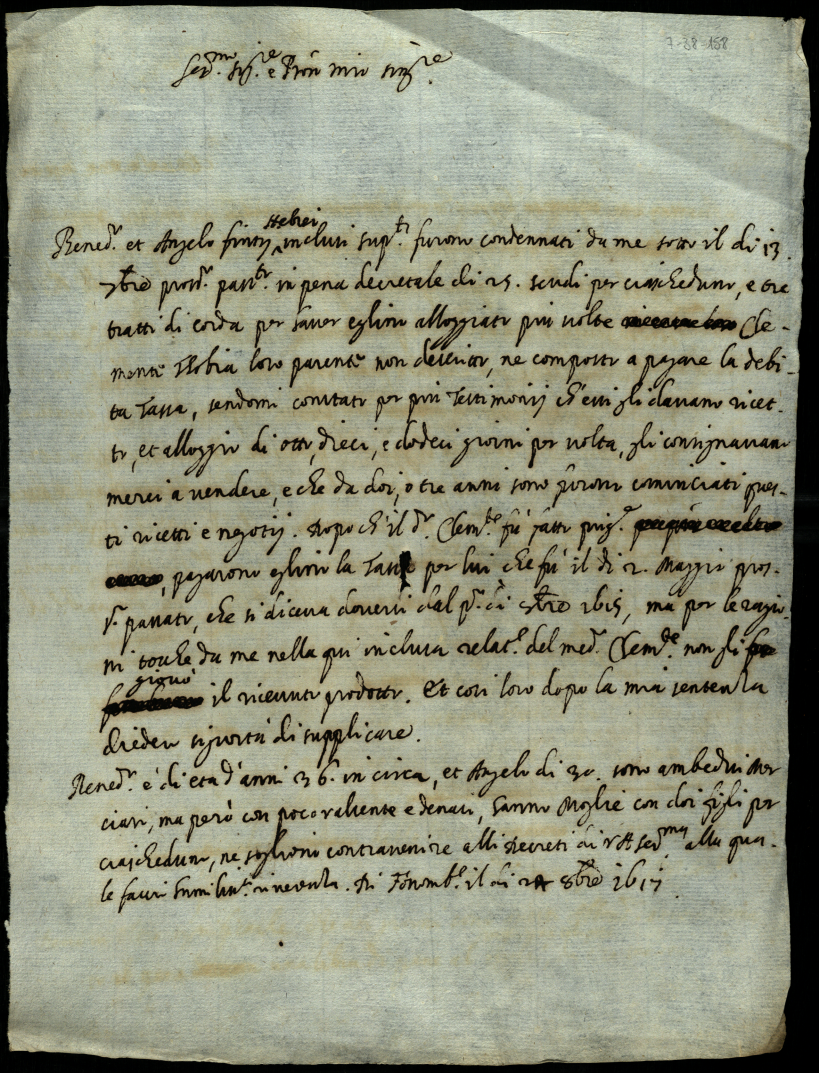 7-38-158
Ser.mo Sig.re e Pron mio sing.re
Hebrei
Bened.o et Angelo inclusi sup.ti furono condennati da me sotto il di 13.
7bre pross.o pass.to in pena decretale di 25. scudi per ciascheduno, e tre
tratti di corda per haver eglino alloggiato più volte Cle-
mente loro parente non descritto, ne composto a pagare la debi-
ta Tassa, sendomi constato per più Testimonij ch'essi gli davano ricet-
to, et alloggio di otto, dieci, e dodeci giorni per volta, gli consignavano
merci a vendere, e che da doi, o tre anni sono furono cominciati ques-
ti ricetti e negotij. Dopo ch'il d.o Clem.te fù fatto prig.e
, pagarono eglino la Tassa per lui che fù il di 2. Maggio pros-
s.o passato, che si diceva doversi dal p.o di 7bre 1615, ma per le ragio-
ni tocche da me nella qui inclusa relat.e del med.o Clem.te non gli
giovò
il ricevuto prodotto. Et così loro dopo la mia sentenza
diedero sigurtà di supplicare.
Bened.o è di età d'anni 36. in circa, et Angelo di 30. sono ambedui Mer
ciari, ma però con poco valsente e denari, hanno Moglie con doi figli per
ciascheduno, ne sogliono contravenire alli Decreti di V A Ser.ma alla qua-
le faccio humilm.te riverenza. Di il di 24 8bre 1617